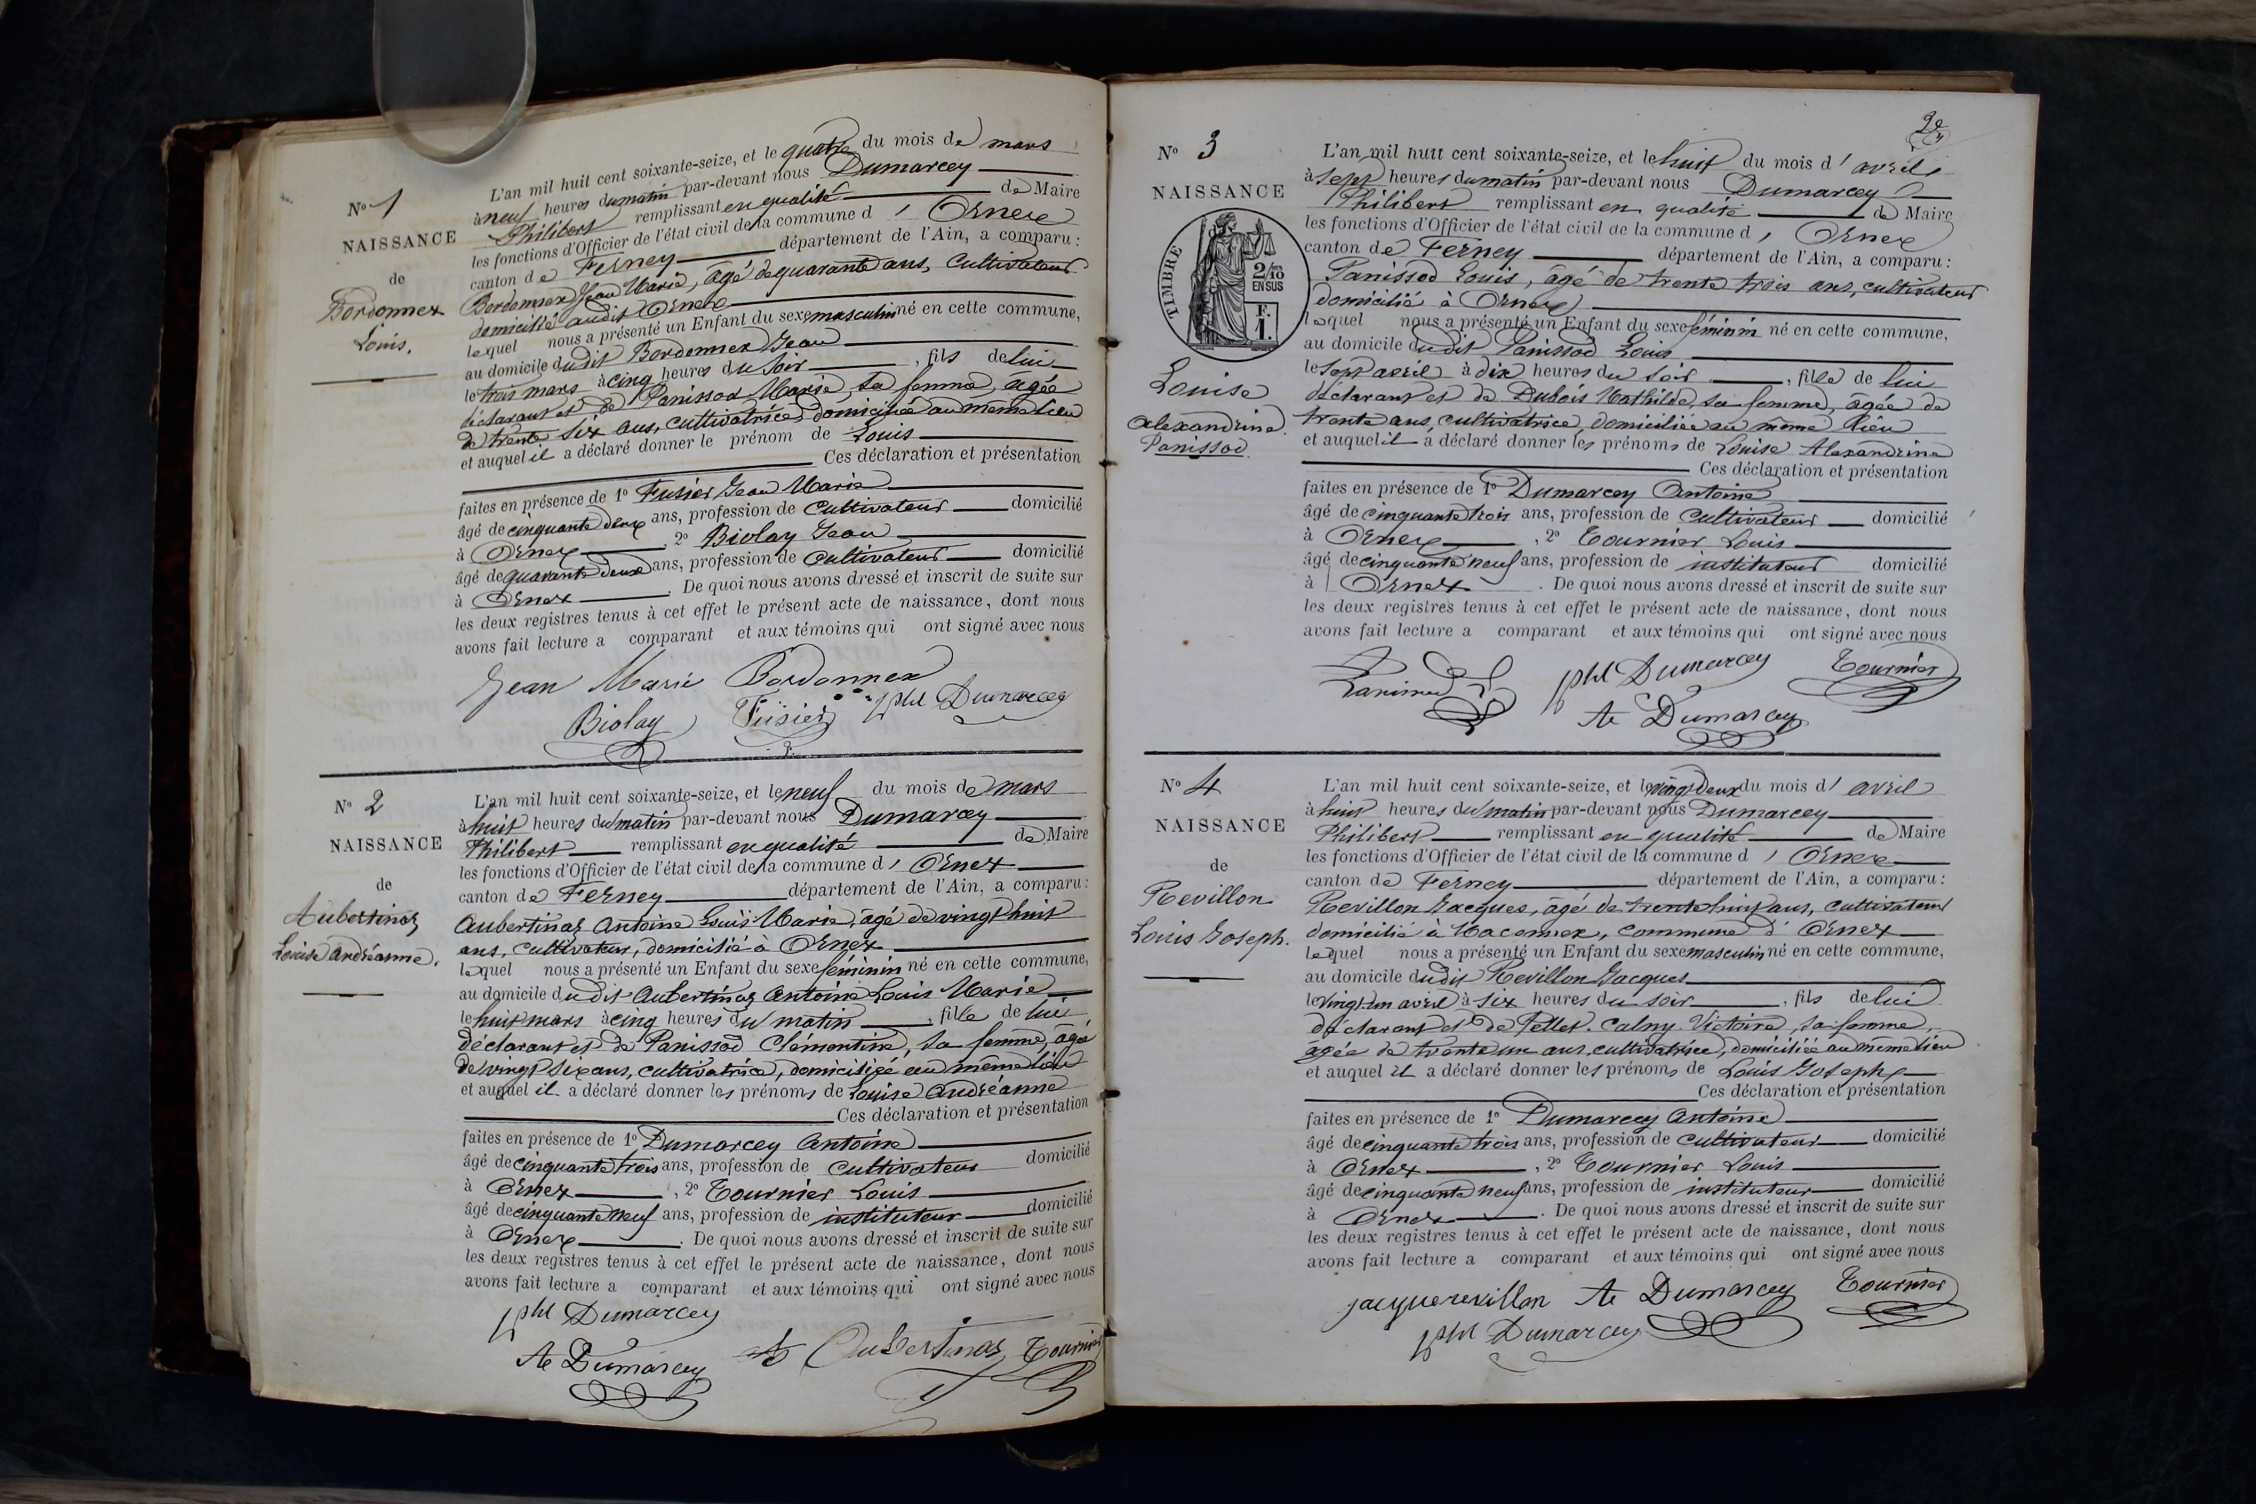 N° 1
NAISSANCE
de
Bordonnex
Louis.
L'an mil huit cent soixante-seize, et le quatre du mois de mars
à neuf heures du matin par-devant nous Dumarcey
Philibert remplissant en qualité de Maire
les fonctions d'Officier de l'état civil de la commune d' Ornex
canton de Ferney département de l'Ain, a comparu :
Bordonnex Jean Marie, âgé de quarante ans, cultivateur
domicilié audit Ornex
lequel nous a présenté un Enfant du sexe masculin né en cette commune,
au domicile dudit Bordonnex Jean
le trois mars à cinq heures du soir, fils de lui
déclarant et de Panissod Marie, sa femme, agée
de trente six ans, cultivatrice, domiciliée au même lieu
et auquel il a déclaré donner le prénom de Louis
Ces déclaration et présentation
faites en présence de 1° Fusier Jean Marie
âgé de cinquante deux ans, profession de cultivateur domicilié
à Ornex, 2° Biolay Jean
âgé de quarante deux ans, profession de cultivateur domicilié
à Ornex. De quoi nous avons dressé et inscrit de suite sur
les deux registres tenus à cet effet le présent acte de naissance, dont nous
avons fait lecture a comparant et aux témoins qui ont signé avec nous
Jean Marie Bordonnex
Biolay Fusier phl Dumarcey
N° 2
NAISSANCE
de
Aubertinaz
Louise andréanne.
L'an mil huit cent soixante-seize, et le neuf du mois de mars
à huit heures du matin par-devant nous Dumarcey
Philibert remplissant en qualité de Maire
les fonctions d'Officier de l'état civil de la commune d' Ornex
canton de Ferney département de l'Ain, a comparu :
Aubertinaz Antoine Louis Marie, âgé de vingt huit
ans, cultivateur, domicilié à Ornex
lequel nous a présenté un Enfant du sexe féminin né en cette commune,
au domicile dudit Aubertinaz Antoine Louis Marie
le huit mars à cinq heures du matin, fille de lui
déclarant et de Panissod Clémentine, sa femme, âgée
de vingt six ans, cultivatrice, domiciliée au même lieu
et auquel il a déclaré donner les prénoms de Louise andréanne
Ces déclaration et présentation
faites en présence de 1° Dumarcey Antoine
âgé de cinquante trois ans, profession de cultivateur domicilié
à Ornex, 2° Tournier Louis
âgé de cinquante neuf ans, profession de instituteur domicilié
à Ornex. De quoi nous avons dressé et inscrit de suite sur
les deux registres tenus à cet effet le présent acte de naissance, dont nous
avons fait lecture a comparant et aux témoins qui ont signé avec nous
phl Dumarcey
Ae Dumarcey Aubertinaz Tournier
2e
N° 3
NAISSANCE
TIMBRE
2/10
EN SUS
F.
1.
Louise
Alexandrine
Panissod
L'an mil huit cent soixante-seize, et le huit du mois d' avril
à sept heures du matin par-devant nous Dumarcey
Philibert remplissant en qualité de Maire
les fonctions d'Officier de l'état civil de la commune d' Ornex
canton de Ferney département de l'Ain, a comparu :
Panissod Louis, âgé de trente trois ans, cultivateur
domicilié à Ornex
lequel nous a présenté un Enfant du sexe féminin né en cette commune,
au domicile dudit Panissod Louis
le sept avril à dix heures du soir, fille de lui
déclarant et de Dubois Mathilde, sa femme, âgée de
trente ans, cultivatrice, domiciliée au même lieu
et auquel il a déclaré donner les prénoms de Louise Alexandrine
Ces déclaration et présentation
faites en présence de 1° Dumarcey Antoine
âgé de cinquante trois ans, profession de cultivateur domicilié
à Ornex, 2° Tournier Louis
âgé de cinquante neuf ans, profession de instituteur domicilié
à Ornex. De quoi nous avons dressé et inscrit de suite sur
les deux registres tenus à cet effet le présent acte de naissance, dont nous
avons fait lecture a comparant et aux témoins qui ont signé avec nous
phl Dumarcey Tournier
Ae Dumarcey
N° 4
NAISSANCE
de
Revillon
Louis Joseph.
L'an mil huit cent soixante-seize, et le vingt deux du mois d' avril
à huit heures du matin par-devant nous Dumarcey
Philibert remplissant en qualité de Maire
les fonctions d'Officier de l'état civil de la commune d' Ornex
canton de Ferney département de l'Ain, a comparu :
Revillon Jacques, âgé de trente huit ans, cultivateur
domicilié à Maconnex, commune d' Ornex
lequel nous a présenté un Enfant du sexe masculin né en cette commune,
au domicile dudit Revillon Jacques
le vingt un avril à six heures du soir, fils de lui
déclarant et de Pellet-Calny Victoire, sa femme,
âgée de trente un ans, cultivatrice, domiciliée au même lieu
et auquel il a déclaré donner les prénoms de Louis Joseph
Ces déclaration et présentation
faites en présence de 1° Dumarcey Antoine
âgé de cinquante trois ans, profession de cultivateur domicilié
à Ornex, 2° Tournier Louis
âgé de cinquante neuf ans, profession de instituteur domicilié
à Ornex. De quoi nous avons dressé et inscrit de suite sur
les deux registres tenus à cet effet le présent acte de naissance, dont nous
avons fait lecture a comparant et aux témoins qui ont signé avec nous
jacque revillon Ae Dumarcey Tournier
phl Dumarcey